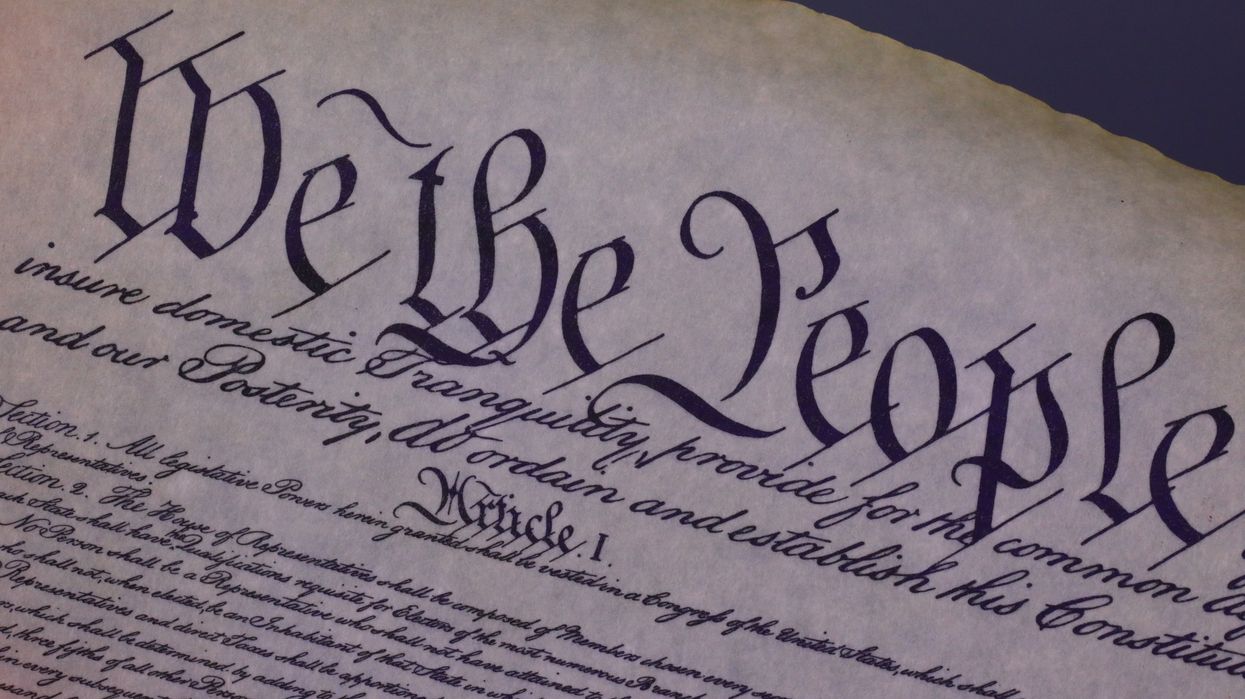 We the People
insure domestic Tranquility, provide for the common
and our Posterity, do ordain and establish this
Article. I.
Section. 1. All legislative Powers herein granted shall be vested in a Congress of the United States, which shall
of Representatives.
Section. 2. The House of Representatives shall be composed of Members chosen every
State shall have the Qualifications requisite for Electors of the most numerous Branch
No Person shall be a Representative who shall not have attained to
shall not, when elected, be an Inhabitant of that State in
Representatives and direct Taxes shall be
which shall be determined by adding to
three fifths of all other
every subsequent